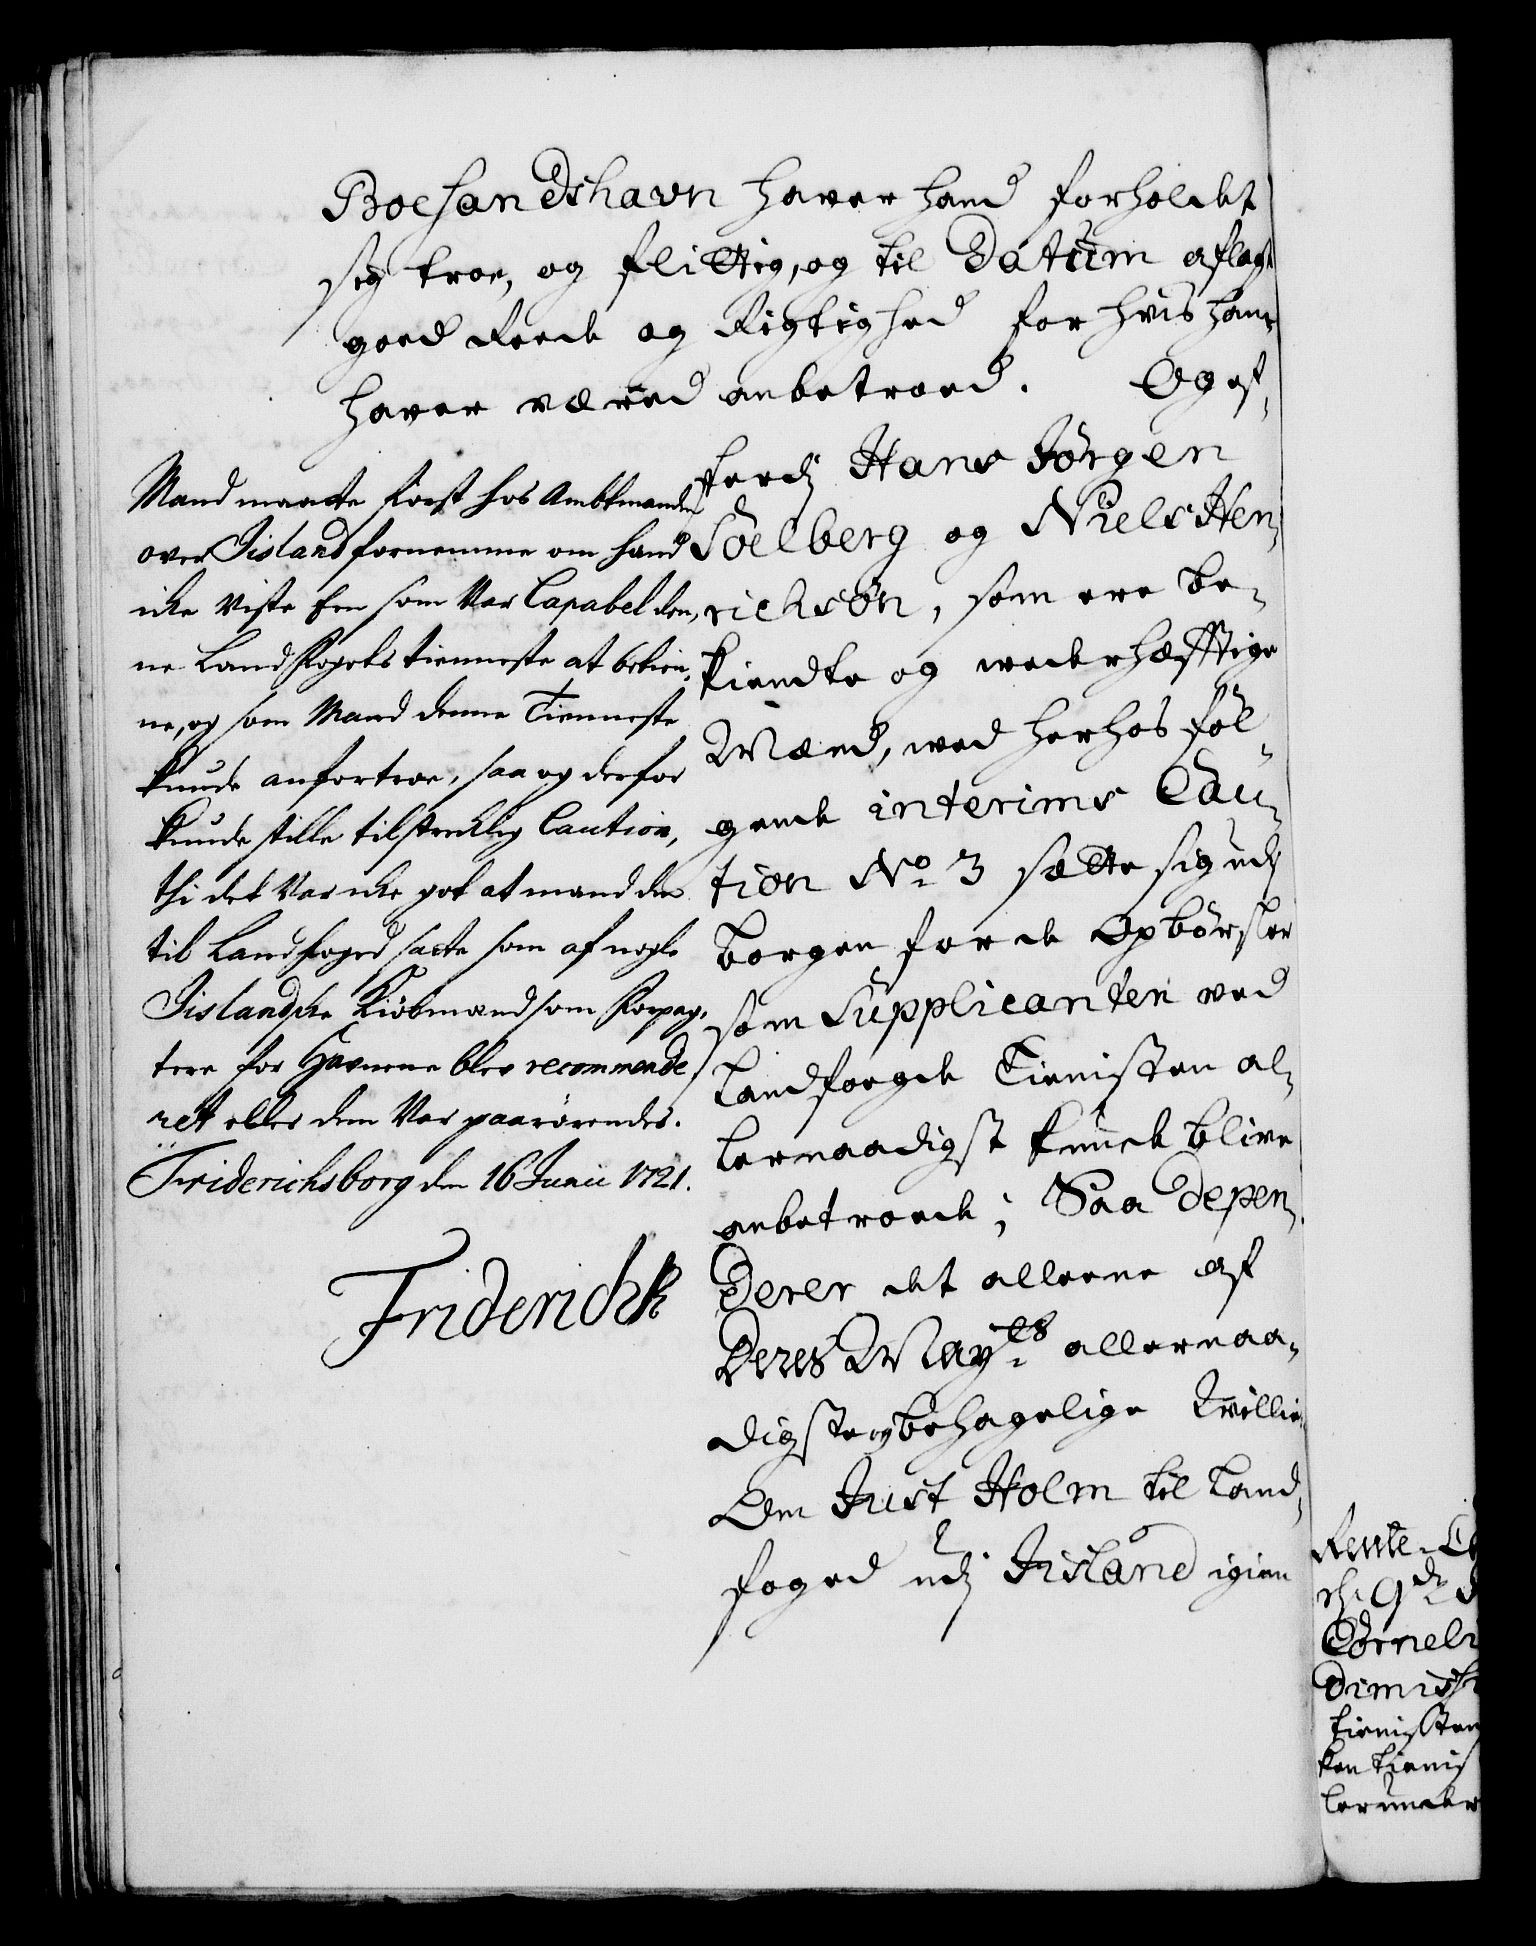 Boesandshavn haver hand forholdet
sig troe, og flittig, og til Datum aflagt
goed Reede og Rigtighed for hvis hand
haver været anbetroed. Og ef-
terdj Hans Jörgen
Söelberg og Niels Hen-
richsön, som ere be-
kiendte og wederhæfftige
Mænd, wed herhos föl-
gende interims Cau-
tion No. 3 sætte sig udj
borgen for de Opbörsler
som Supplicanten ved
Landfoegde Tienisten al-
lernaadigst kunde blive
anbetroede; Saa depen-
derer det alleene af
Deres May.ts allernaa-
digste og behagelige Willie
Om Just Holm til Land-
foged udj Jisland igien
Mand maatte först hos Ambtmanden
over Jisland fornemme om hand
icke viste een som Var Capabel den-
ne Land Fogets tienneste at betien-
ne, og som Mand denne Tienneste
kunde anfortroe, saa og derfor
kunde stille tilstreckelig Caution,
thi det Var icke got at mand den
til Landfoged satte som af nogle
Jislandske Kiöbmænd som Forpag-
tere for Havnene blev recommende-
ret eller dem Var paarörendes.
Friderichsborg den 16 Junii 1721.
Friderich R
Rente-
Corneli
Dimis
tienisten
ken tienis